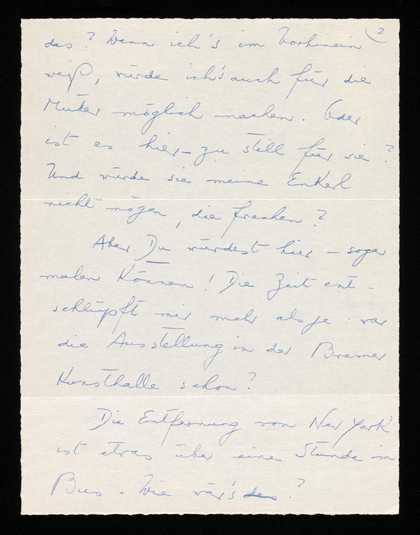 2
das? Wenn ich's im Vorhinein
weiß, würde ich's auch für die
Mutter möglich machen. Oder
ist es hier – zu still für sie?
Und würde sie meine Enkerl
nicht mögen, die frechen?
Aber Du würdest hier – sogar
malen können! Die Zeit ent-
schlüpft mir mehr als je. War
die Ausstellung in der Bremer
Kunsthalle schon?
Die Entfernung von New York
ist etwas über eine Stunde im
Bus. Wie wär's?